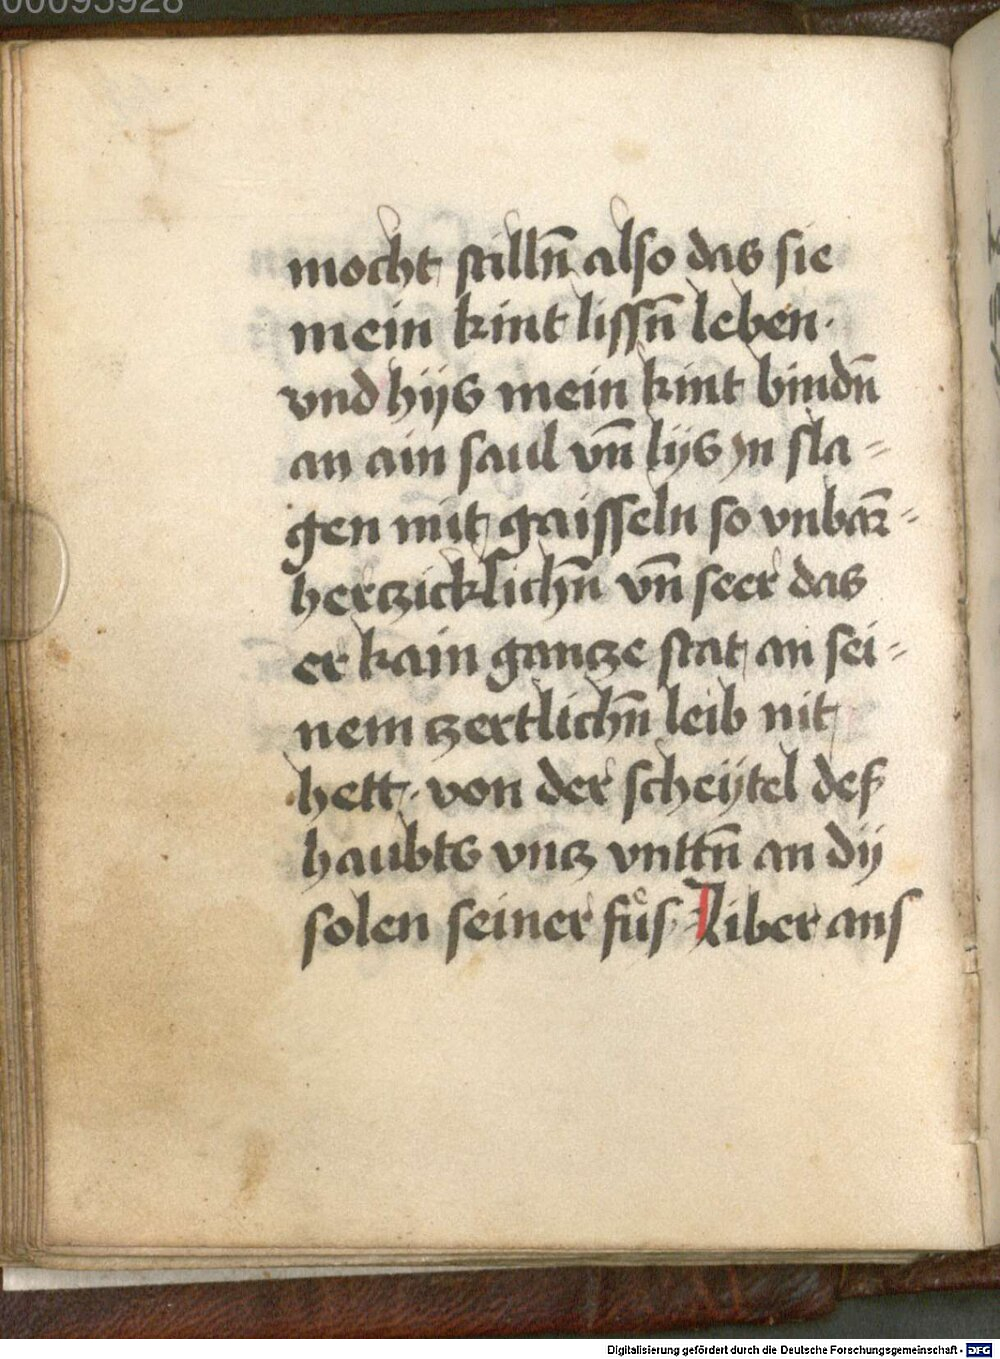 00095928
mocht stilln̄ also das sie
mein kint lissn̄ leben·
vnd hijs mein kint bindn̄
an ain saul vn̄ lijs jn sla=
gen mit gaisseln so vnbar̄=
herczicklichn̄ vn̄ seer das
er kain gancze stat an sei=
nem czertlichn̄ leib nit
hett· von der scheÿtel des
haubts vncz vnttn̄ an dij
solen seiner fuͤs Liber ans
Digitalisierung gefördert durch die Deutsche Forschungsgemeinschaft - DFG